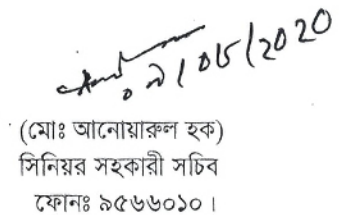 ০৯/০৮/২০২০
(মোঃ আনোয়ারুল হক)
সিনিয়র সহকারী সচিব
ফোনঃ ৯৫৬৬০১০।